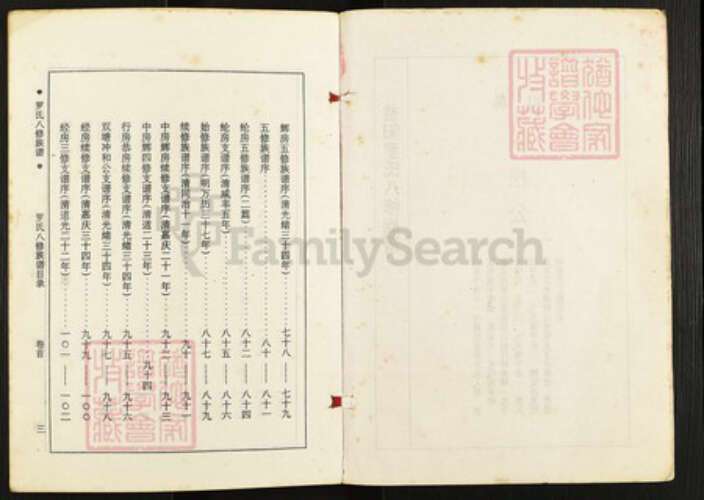 辉房五修族谱序(清光绪三十四年)……七十八——七十九
五修族谱序……八十——八十一
纶房五修族谱序(二篇)……八十二——八十四
纶房支谱序(清咸丰五年)……八十五——八十六
始修族谱序(明万历三十七年)……八十七——八十九
续修族谱序(清同治十一年)……九十——九十一
中房辉房续修支谱序(清嘉庆二十一年)……九十二——九十三
中房辉四修支谱序(清道二十三年)……九十四
行房恭房续修支谱序(清光绪三十四年)……九十五——九十六
双塘冲和公支谱序(清光绪三十四年)……九十七——九十八
经房续修支谱序(清嘉庆三十四年)……九十九——一〇〇
经房三修支谱序(清道光二十二年)……一〇一——一〇二
●罗氏八修族谱● 罗氏八修族谱目录 卷首 三
FamilySearch